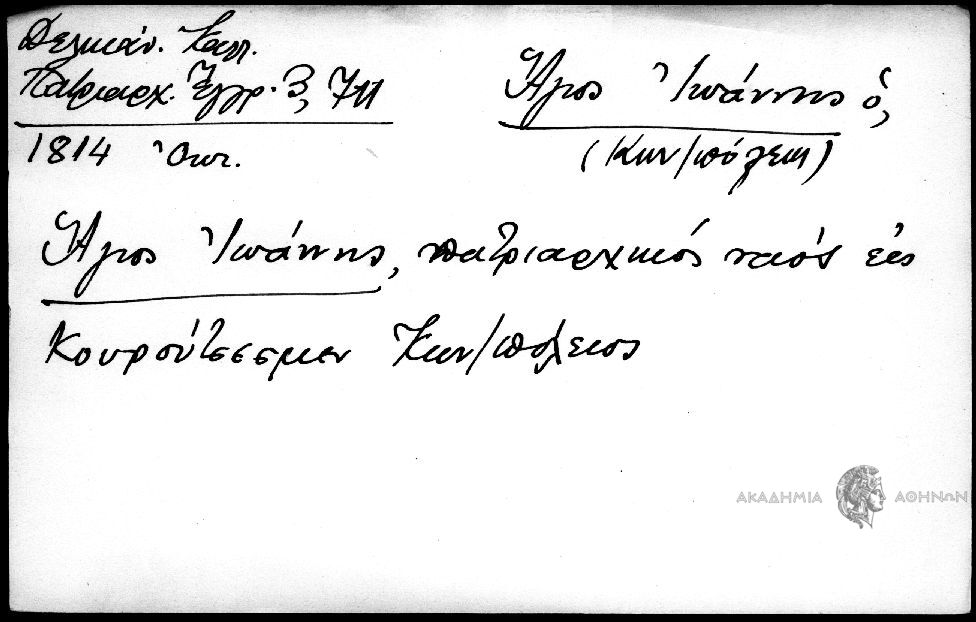 Δελικάν. Καλλ.
Πατριαρχ. Ἔγγρ. 3, 711
Ἅγιος Ἰωάννης ὁ,
1814 Ὀκτ.
(Κων/πόλεως)
Ἅγιος Ἰωάννης, πατριαρχικός ναός εἰς
Κουρούτσεσμεν Κων/πόλεως
ΑΚΑΔΗΜΙΑ ΑΘΗΝΩΝ